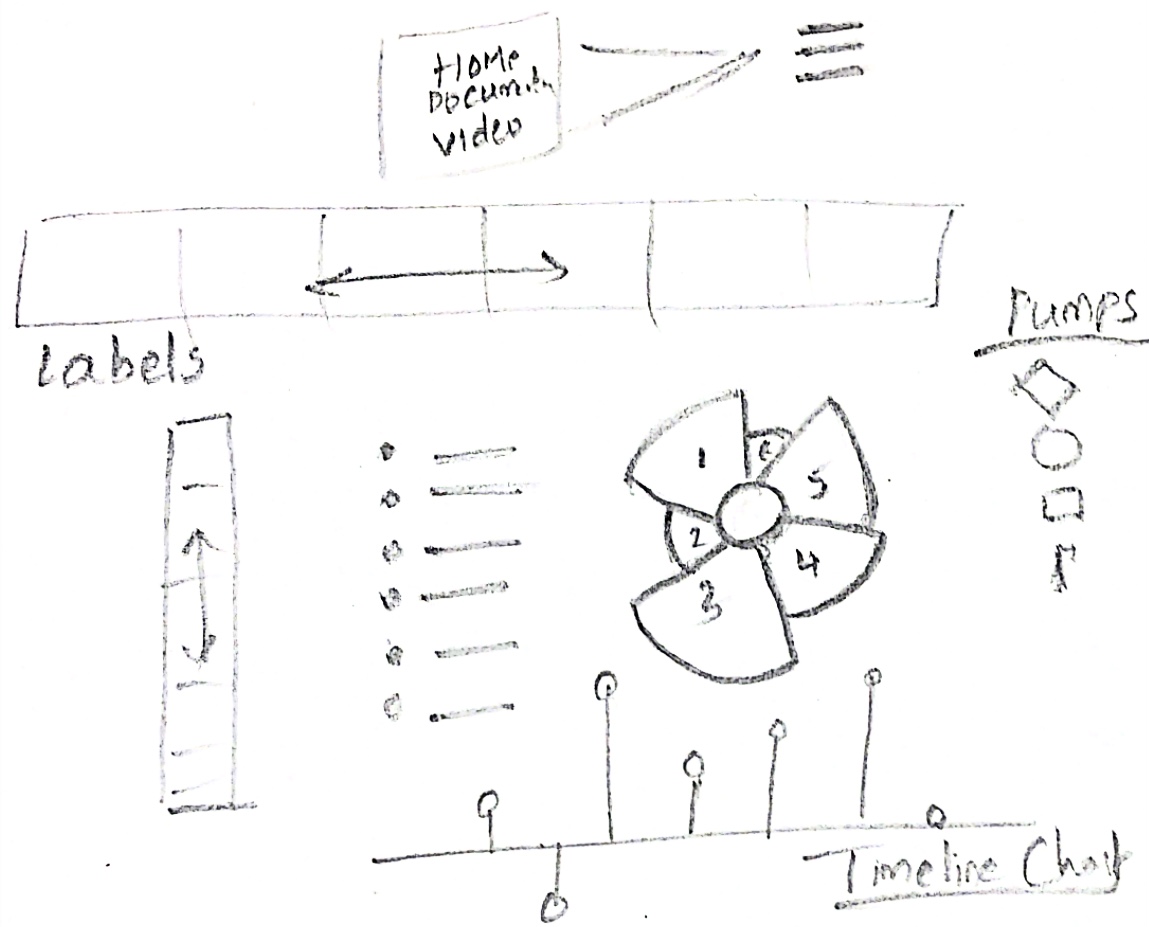 HOME
Document
Video
Labels
Pumps
1
6
5
2
4
3
Timeline Chart